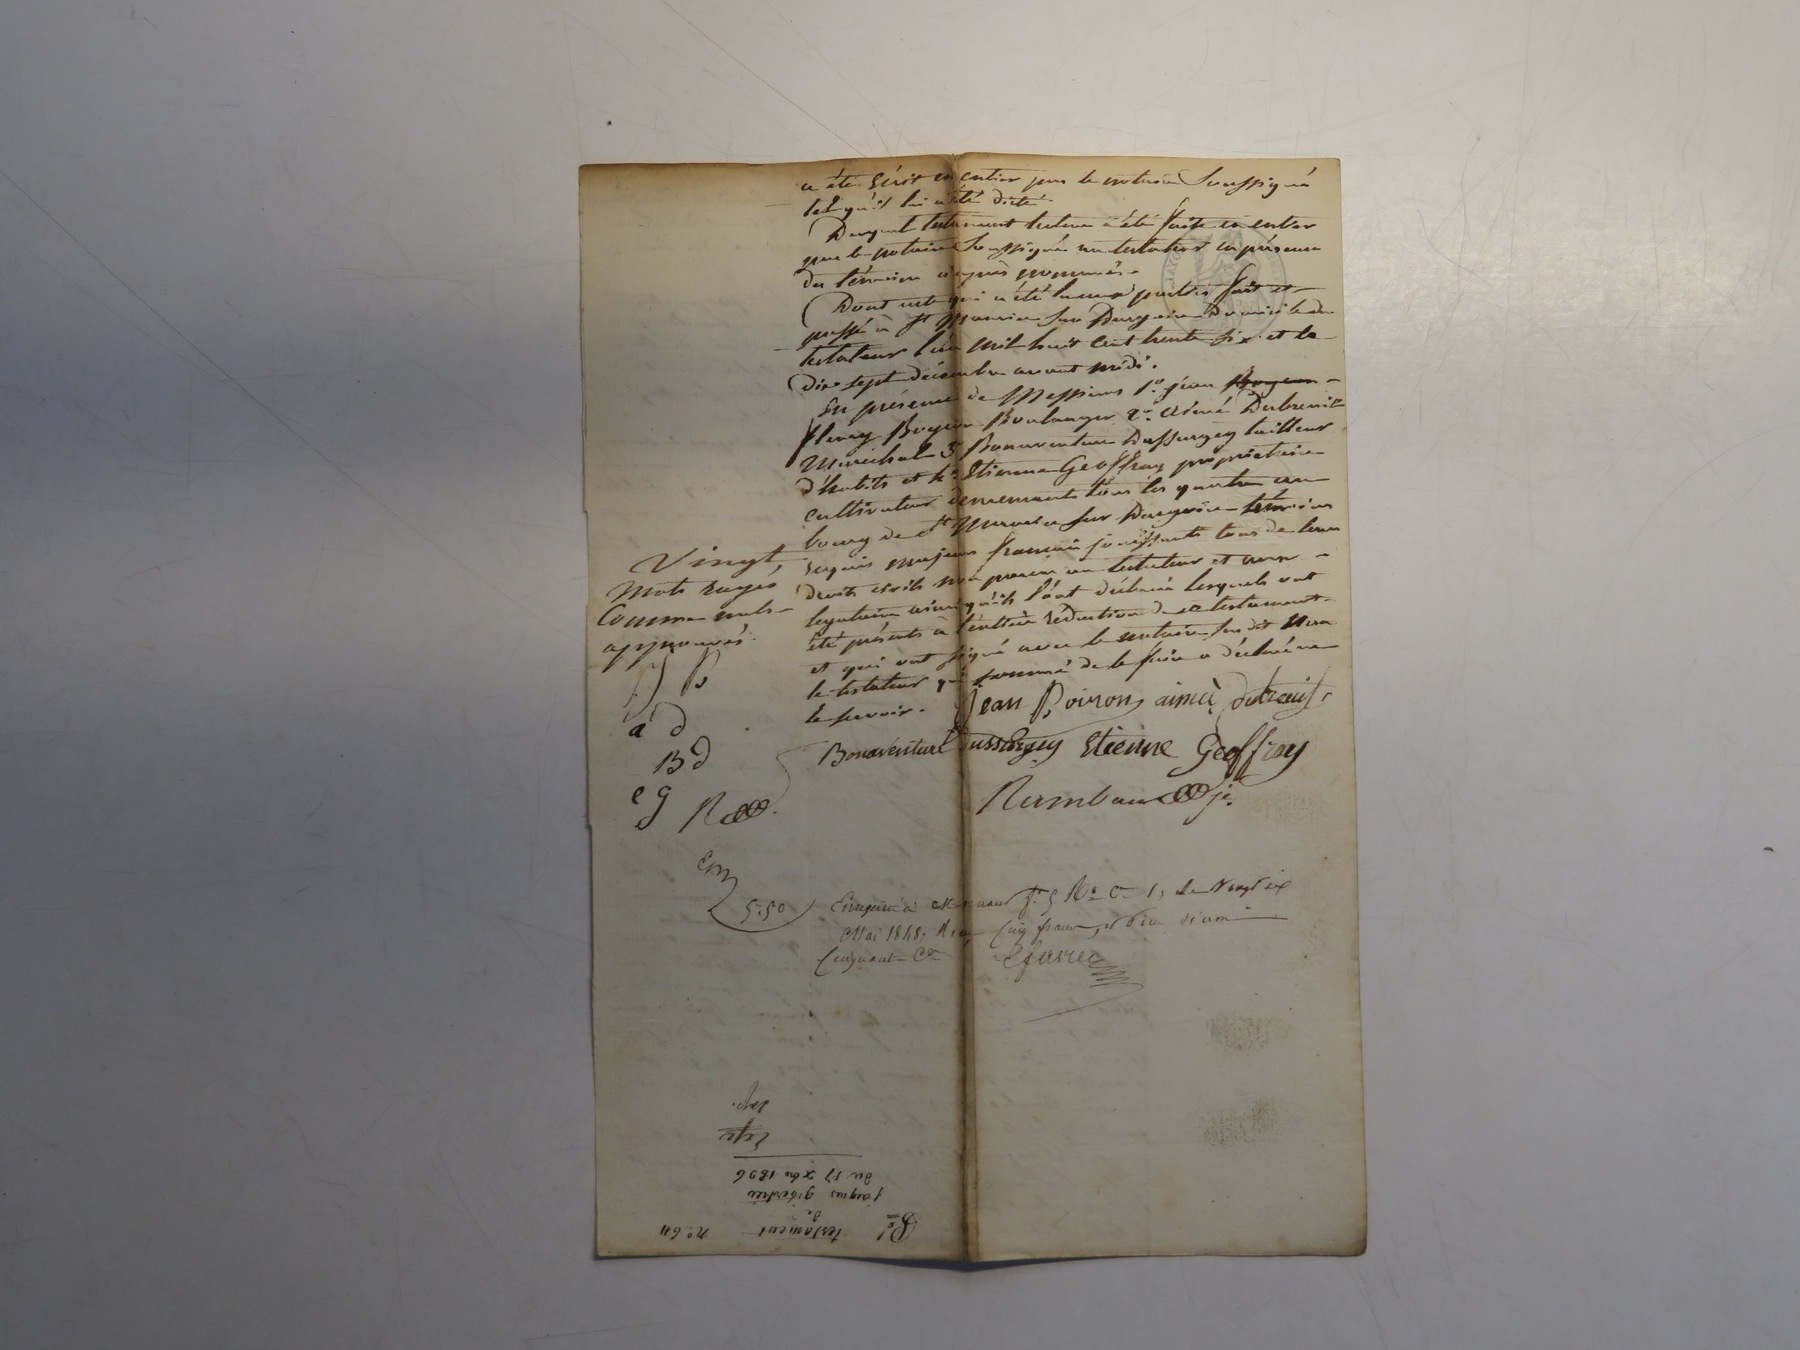 a été écrit en entier par le notaire soussigné
tel qu'il lui a été dicté.
Duquel testament lecture a été faite en entier
par le notaire soussigné au testateur en présence
des témoins ci après nommés.
Dont acte qui a été lu aux parties fait et
passé à St Maurice sur Dargoire domicile du
testateur l'an mil huit cent trente six et le
dix sept décembre avant midi.
En présence de Messieurs 1o. jean
fleury Boyron Boulanger 2o. aimé Dubreuil
Maréchal 3o Bonaventure Dussurgey tailleur
d'habits et 4o. Etienne Geoffray propriétaire
cultivateur demeurant tous les quatre au
bourg de St Maurice sur Dargoire témoins
requis majeurs français jouissants tous de leurs
droits civils non parens au testateur et aux
légataires ainsi qu'ils l'ont déclaré lesquels ont
été présents à l'entière rédaction de ce testament
et qui ont signé avec le notaire susdit non
le testateur qui sommé de le faire a déclaré ne
le savoir.
Vingt,
Mots rayés
Comme nuls
approuvés.
J P
a d
B d
e g R
Jean Boiron aimé dubreuil
Bonaventure Dussurgey Etienne Geoffray
Rambaud je.
5.50
Enregistré à Mornant fo. 5 Ro Ce 1, Le Vingt six
Mai 1848; Reçu Cinq francs, et dixième
Cinquante Ces
testament no. 64
de
jacques
du 17 xbre 1836
Expé